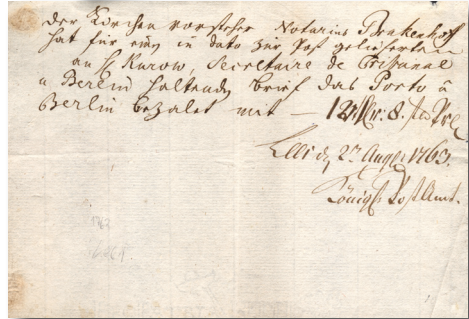 Der Kirchen vorsteher Notarius Brakenhof
hat für einen in dato zur Post gelieferten
an H Kurow, Secretaire de Tribunal
a Berlin haltenden brief das Porto a
Berlin bezalet mit —
den 2ten Augst 1763.
Königl Post Amt.
1763